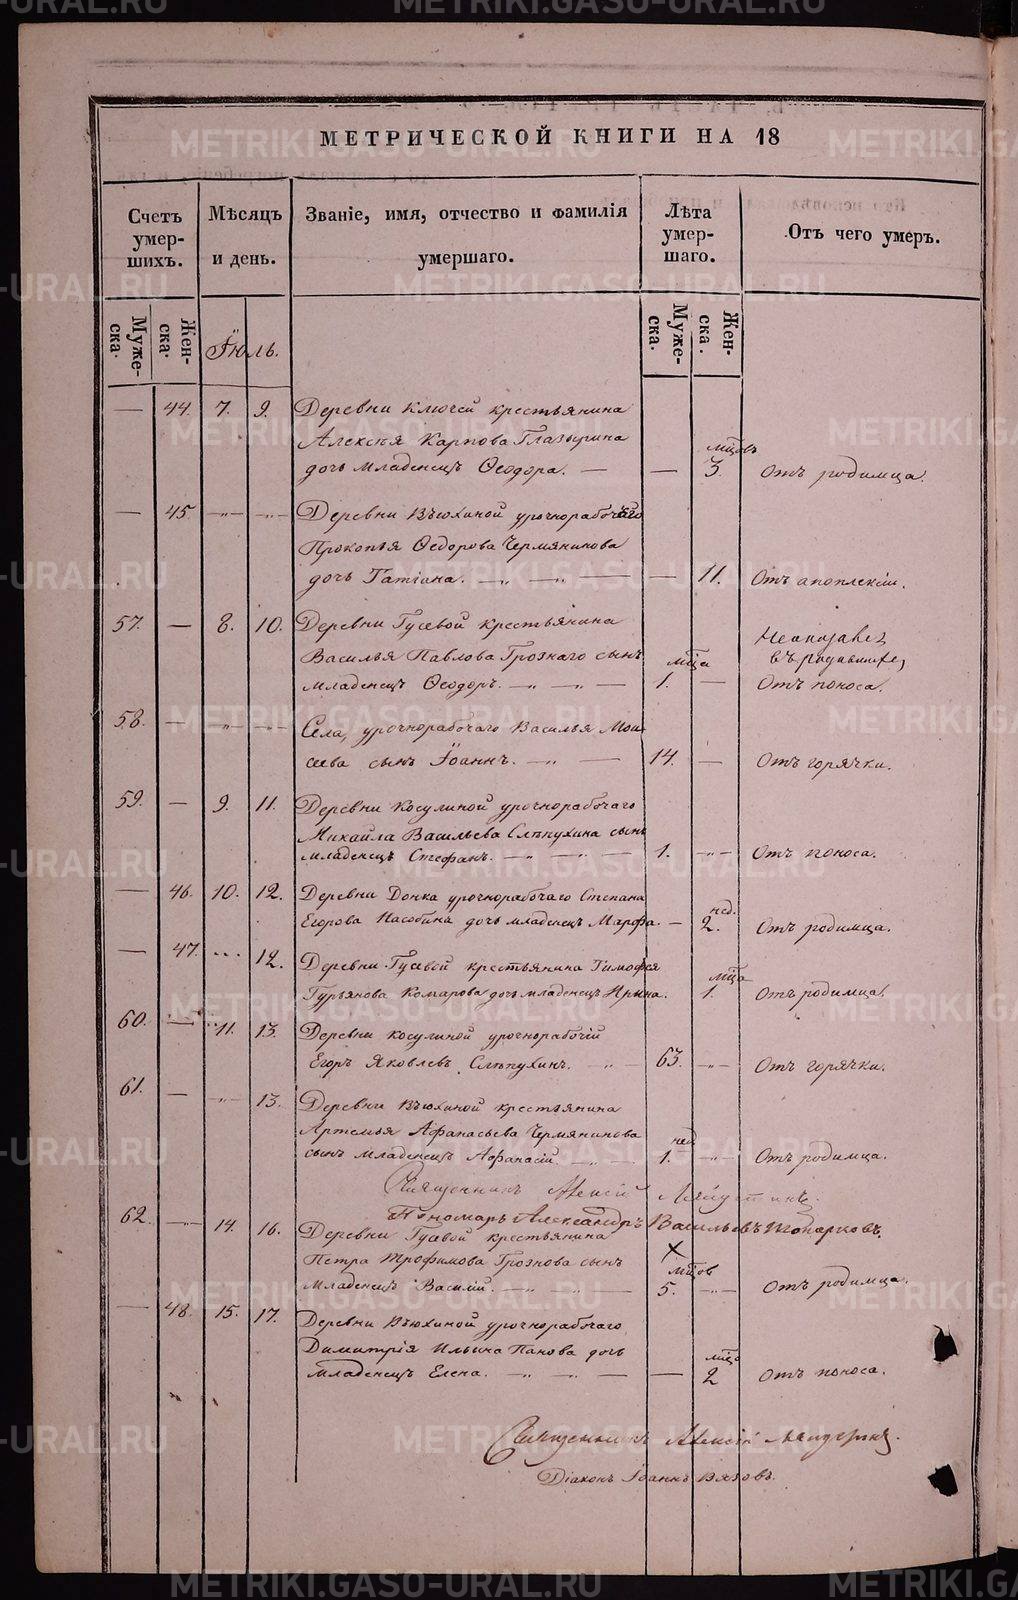 МЕТРИЧЕСКОЙ КНИГИ НА 18
Счетъ умер- шихъ.
Мѣсяцъ и день.
Званіе, имя, отчество и фамилія умершаго.
Лѣта умер- шаго.
Отъ чего умеръ.
Муже- ска.
Жен- ска.
Іюль.
Муже- ска.
Жен- ска.
— 44. 7. 9. Деревни Ключей крестьянина
Алексѣя Карпова Глазырина мцовъ
дочь младенецъ Ѳеодора. — — 3. Отъ родимца.
— 45. —"— —"— Деревни Вьюхиной урочнорабочаго
Прокопья Ѳедорова Чермянинова
дочь Татіана. —"— —"— — — 11. Отъ апоплексіи.
57. — 8. 10. Деревни Гусевой крестьянина
Василья Павлова Грознаго сынъ мца
младенецъ Ѳеодоръ. —"— —"— — 1. — Отъ поноса.
58. — —"— —"— Села, урочнорабочаго Василья Мои-
сеева сынъ Іоаннъ. —"— — 14. — Отъ горячки.
59. — 9. 11. Деревни Косулиной урочнорабочаго
Михайла Васильева Слѣпухина сынъ
младенецъ Стефанъ. —"— —"— 1. —"— Отъ поноса.
— 46. 10. 12. Деревни Донка урочнорабочаго Степана нед.
Егорова дочь младенецъ Марфа. — 2. Отъ родимца.
— 47. —"— 12. Деревни Гусевой крестьянина Тимофея мца
Гурьянова Комарова дочь младенецъ Ирина. 1. Отъ родимца.
60. — —"— 11. 13. Деревни Косулиной урочнорабочій
Егоръ Яковлевъ Слѣпухинъ. —"— — 63. —"— Отъ горячки.
61. — —"— 13. Деревни Вьюхиной крестьянина
Артемья Афанасьева Чермянинова нед.
сынъ младенецъ Афанасій. —"— — 1. —"— Отъ родимца.
Священникъ Алексій
Пономарь Александръ Васильевъ
62. — 14. 16. Деревни Гусевой крестьянина
Петра Трофимова Грознова сынъ мцов
младенецъ Василій. —"— —"— 5. —"— Отъ родимца.
— 48. 15. 17. Деревни Вьюхиной урочнорабочаго
Димитрія Ильина Панова дочь мца
младенецъ Елена. —"— —"— — — 2 Отъ поноса.
Священникъ Алексій
Діаконъ Іоаннъ Вязовъ.
METRIKI.GASO-URAL.RU